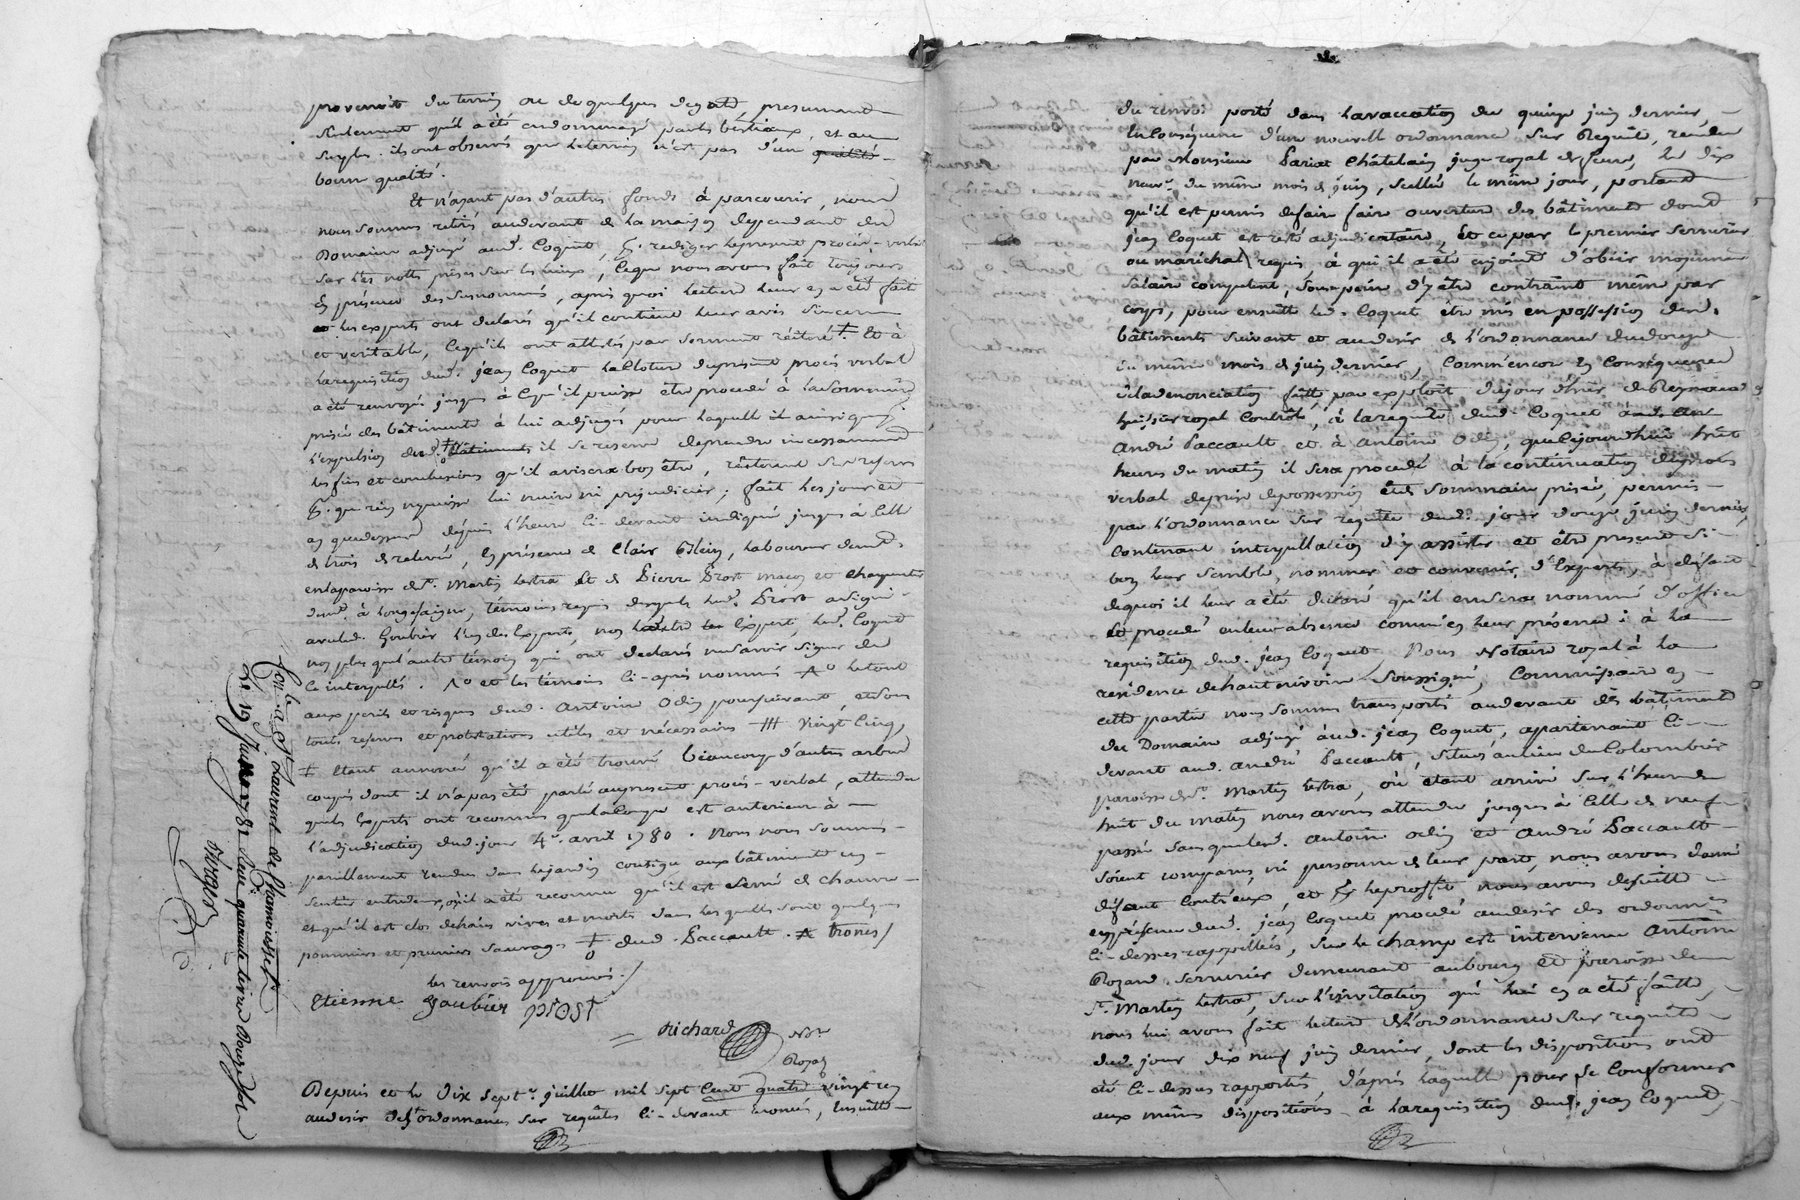 provenir du terrin ou de quelques degats presumant
seulement qu'il a été endommagé par les béstiaux, et au
surplu. ils ont observés que le terrin n'est pas d'un qualité
bonne qualité.
Et n'ayant pas d'autres fonds à parcourir, nous
nous sommes retirés audevant de la maison deppendant du
Domaine adjugé aud. Coquet, pr. rediger le present procès-verbal
sur les notte prises sur les lieux, ce que nous avons fait toujours
en présence des susnommés, après quoi lecture leur en a été fait
les experts ont declarés qu'il contient leur avis sincere
et veritable, ce qu'ils ont attestés par serment réitéré. Et à
la requisition dud. jean Coquet la cloture du present procès verbal
a été renvoyé jusques à ce qu'il puisse être procedé à la sommaire
prisée des bâtiments à lui adjugés pour laquelle il ainsi que pr.
l'expulsion dud. bâtiments il se reserve de prendre incessamment
les fins et conclusions qu'il avisera bon être, réiterant ses reserves
pr. que rien ne puisse lui nuire ni prejudicier; fait les jour et
an que dessus depuis l'heure ci-devant indiqué jusques à celle
de trois de relevée, en présence de Clair Blein, laboureur demt.
en la paroisse de St. Martin Lestra Et de Pierre Prost maçon et charpentier
demt. à Longesaigne, témoins requis desquels led. Prost a signé
avec led. Goubier l'un des Experts, non led. Coquet
non plus que l'autre témoin qui ont declarés ne savoir signer de
ce interpellés. et les témoins ci-après nommés le tout
aux perils et risques dud. Antoine Odin poursuivant, et sous
toutes reserves et protestations utiles et nécessaires vingt cinq
Etant annoncé qu'il a été trouvé beaucoup d'autres arbres
coupés dont il n'a pas été parlé au present procès-verbal, attendu
que les Experts ont reconnus que la coupe est anterieure à
l'adjudication dud. jour 4e. avril 1780. Nous nous sommes
pareillement rendus dans le jardin contigu aux bâtiments
où il a été reconnu qu'il est semé de chanvre
et qu'il est clos de haies vives et morts dans lesquelles sont quelques
pommiers et pruniers sauvages dud. Paccault. trones/
les renvois approuvés./
Etienne Goubier prost
Richard Nre.
Royal
Depuis et le Dix Sept e. juillet mil sept Cent quatre vingt un
au desir des ordonnances sur requêtes ci-devant enoncées, ensuitte
Con.lé a St Laurent de Chamousset
Le 19 Juillet 1781
du renvoi porté dans la vaccation du quinze juin dernier,
En conséquence d'une nouvelle ordonnance sur Requête, rendue
par Monsieur Pariat Châtelain juge royal de feurs, le dix
neuf. du même mois de juin, scellée le même jour, portant
qu'il est permis de faire faire ouverture des bâtiments dont
jean Coquet est resté adjudicataire, Et ce par le premier serrurier
ou maréchal requis à qui il a été enjoint d'obeir moyennant
salaire competent, sous peine d'y être contraint même par
corps, pour ensuitte led. Coquet être mis en possession desd.
bâtiments suivant et au desir de l'ordonnance du douze
du même mois de juin dernier, Comm'encore en Conséquence
de la denonciation faite par exploit du jour d'hier de Reynaud
huissier royal Controlé, à la requête dud. Coquet
André Paccault et à Antoine Odin, que cejourd'hui huit
heures du matin il sera procedé à la continuation du procès
verbal de prise de possession et de sommaire prisée, permis
par l'ordonnance sur requête dud. jour douze juin dernier,
Contenant interpellation d'y assister et être present si
bon leur semble, nommer et convenir d'Experts, à défaut
de quoi il leur a été déclaré qu'il en sera nommé d'office
Et procedé en leur absence comm'en leur présence; à la
requisition dud. jean Coquet, Nous Notaire royal à la
residence de hautrivoire Soussigné, Commissaire en
cette partie nous sommes transportés audevant des bâtiments
du Domaine adjugé aud. jean Coquet, appartenant ci-
devant aud. andré Paccault, situés au lieu du Colombier
paroisse de St. Martin Lestra, où étant arrivé sur l'heure de
huit du matin nous avons attendu jusques à celle de neuf
passée sans que led. antoine odin et andré Paccault
soient comparus, ni personne de leur part, nous avons donné
défaut contr'eux, et pr. le proffit nous avons de suitte
en présence dud. jean Coquet procedé au desir des ordonnces
ci-dessus rappellées, sur le champ est intervenu Antoine
Rozand serrurier demeurant au bourg et paroisse de
St. Martin Lestra, sur l'invitation qui lui en a été faitte,
nous lui avons fait lecture de l'ordonnance sur requête
dud. jour dix neuf juin dernier, dont les dispositions ont
été ci-dessus rapportés, d'après laquelle pour se Conformer
aux mêmes dispositions à la requisition dud. jean Coquet,